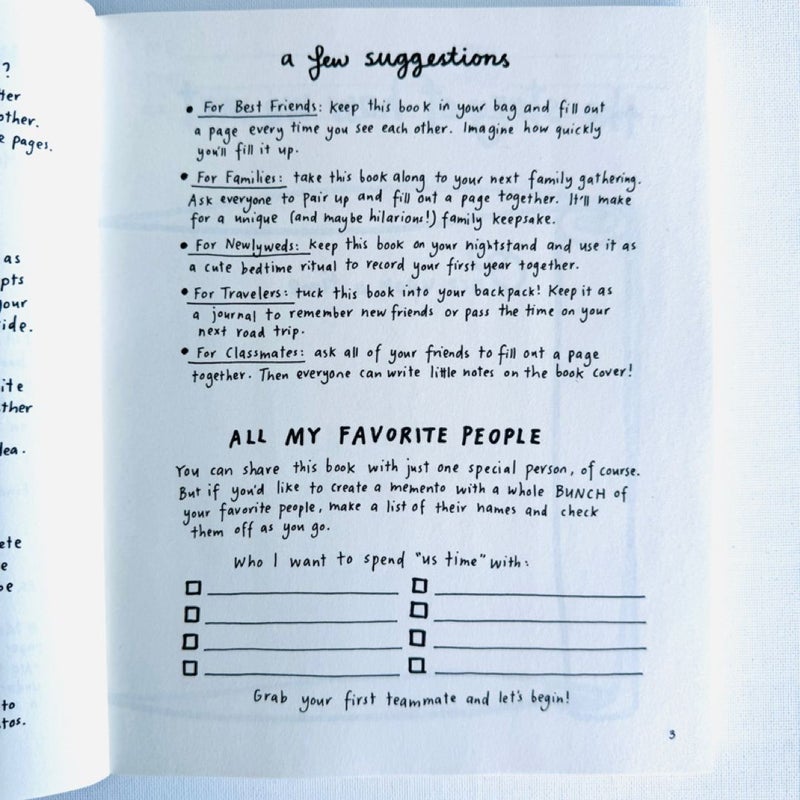 ?
ter
other.
e pages.
as
pts
your
ide.
ite
ther
lea.
ete
e
be
to
tos.
a few suggestions
• For Best Friends: keep this book in your bag and fill out
a page every time you see each other. Imagine how quickly
you'll fill it up.
• For Families: take this book along to your next family gathering.
Ask everyone to pair up and fill out a page together. It'll make
for a unique (and maybe hilarious!) family keepsake.
• For Newlyweds: keep this book on your nightstand and use it as
a cute bedtime ritual to record your first year together.
• For Travelers: tuck this book into your backpack! Keep it as
a journal to remember new friends or pass the time on your
next road trip.
• For Classmates: ask all of your friends to fill out a page
together. Then everyone can write little notes on the book cover!
ALL MY FAVORITE PEOPLE
You can share this book with just one special person, of course.
But if you'd like to create a memento with a whole BUNCH of
your favorite people, make a list of their names and check
them off as you go.
Who I want to spend "us time" with:
Grab your first teammate and let's begin!
3